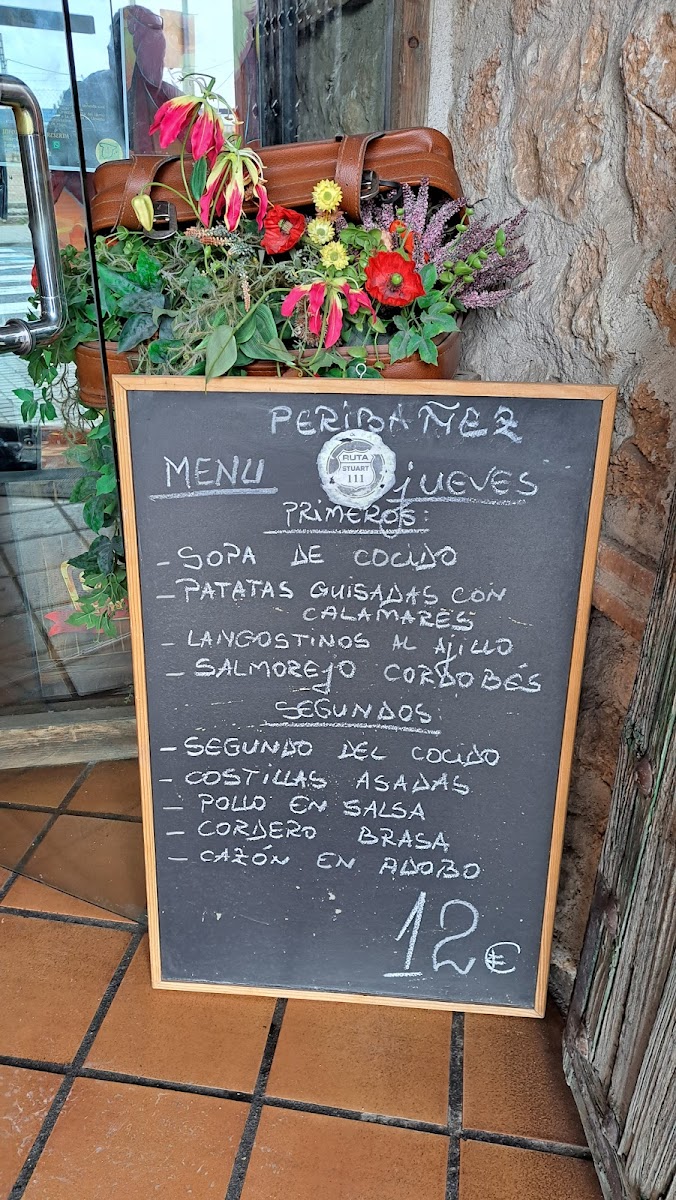 PERIBAÑEZ
RUTA
STUART
111
MENU JUEVES
PRIMEROS:
- SOPA DE COCIDO
- PATATAS GUISADAS CON
CALAMARES
- LANGOSTINOS AL AJILLO
- SALMOREJO CORDOBÉS
SEGUNDOS
- SEGUNDO DEL COCIDO
- COSTILLAS ASADAS
- POLLO EN SALSA
- CORDERO BRASA
- CAZÓN EN ADOBO
12€